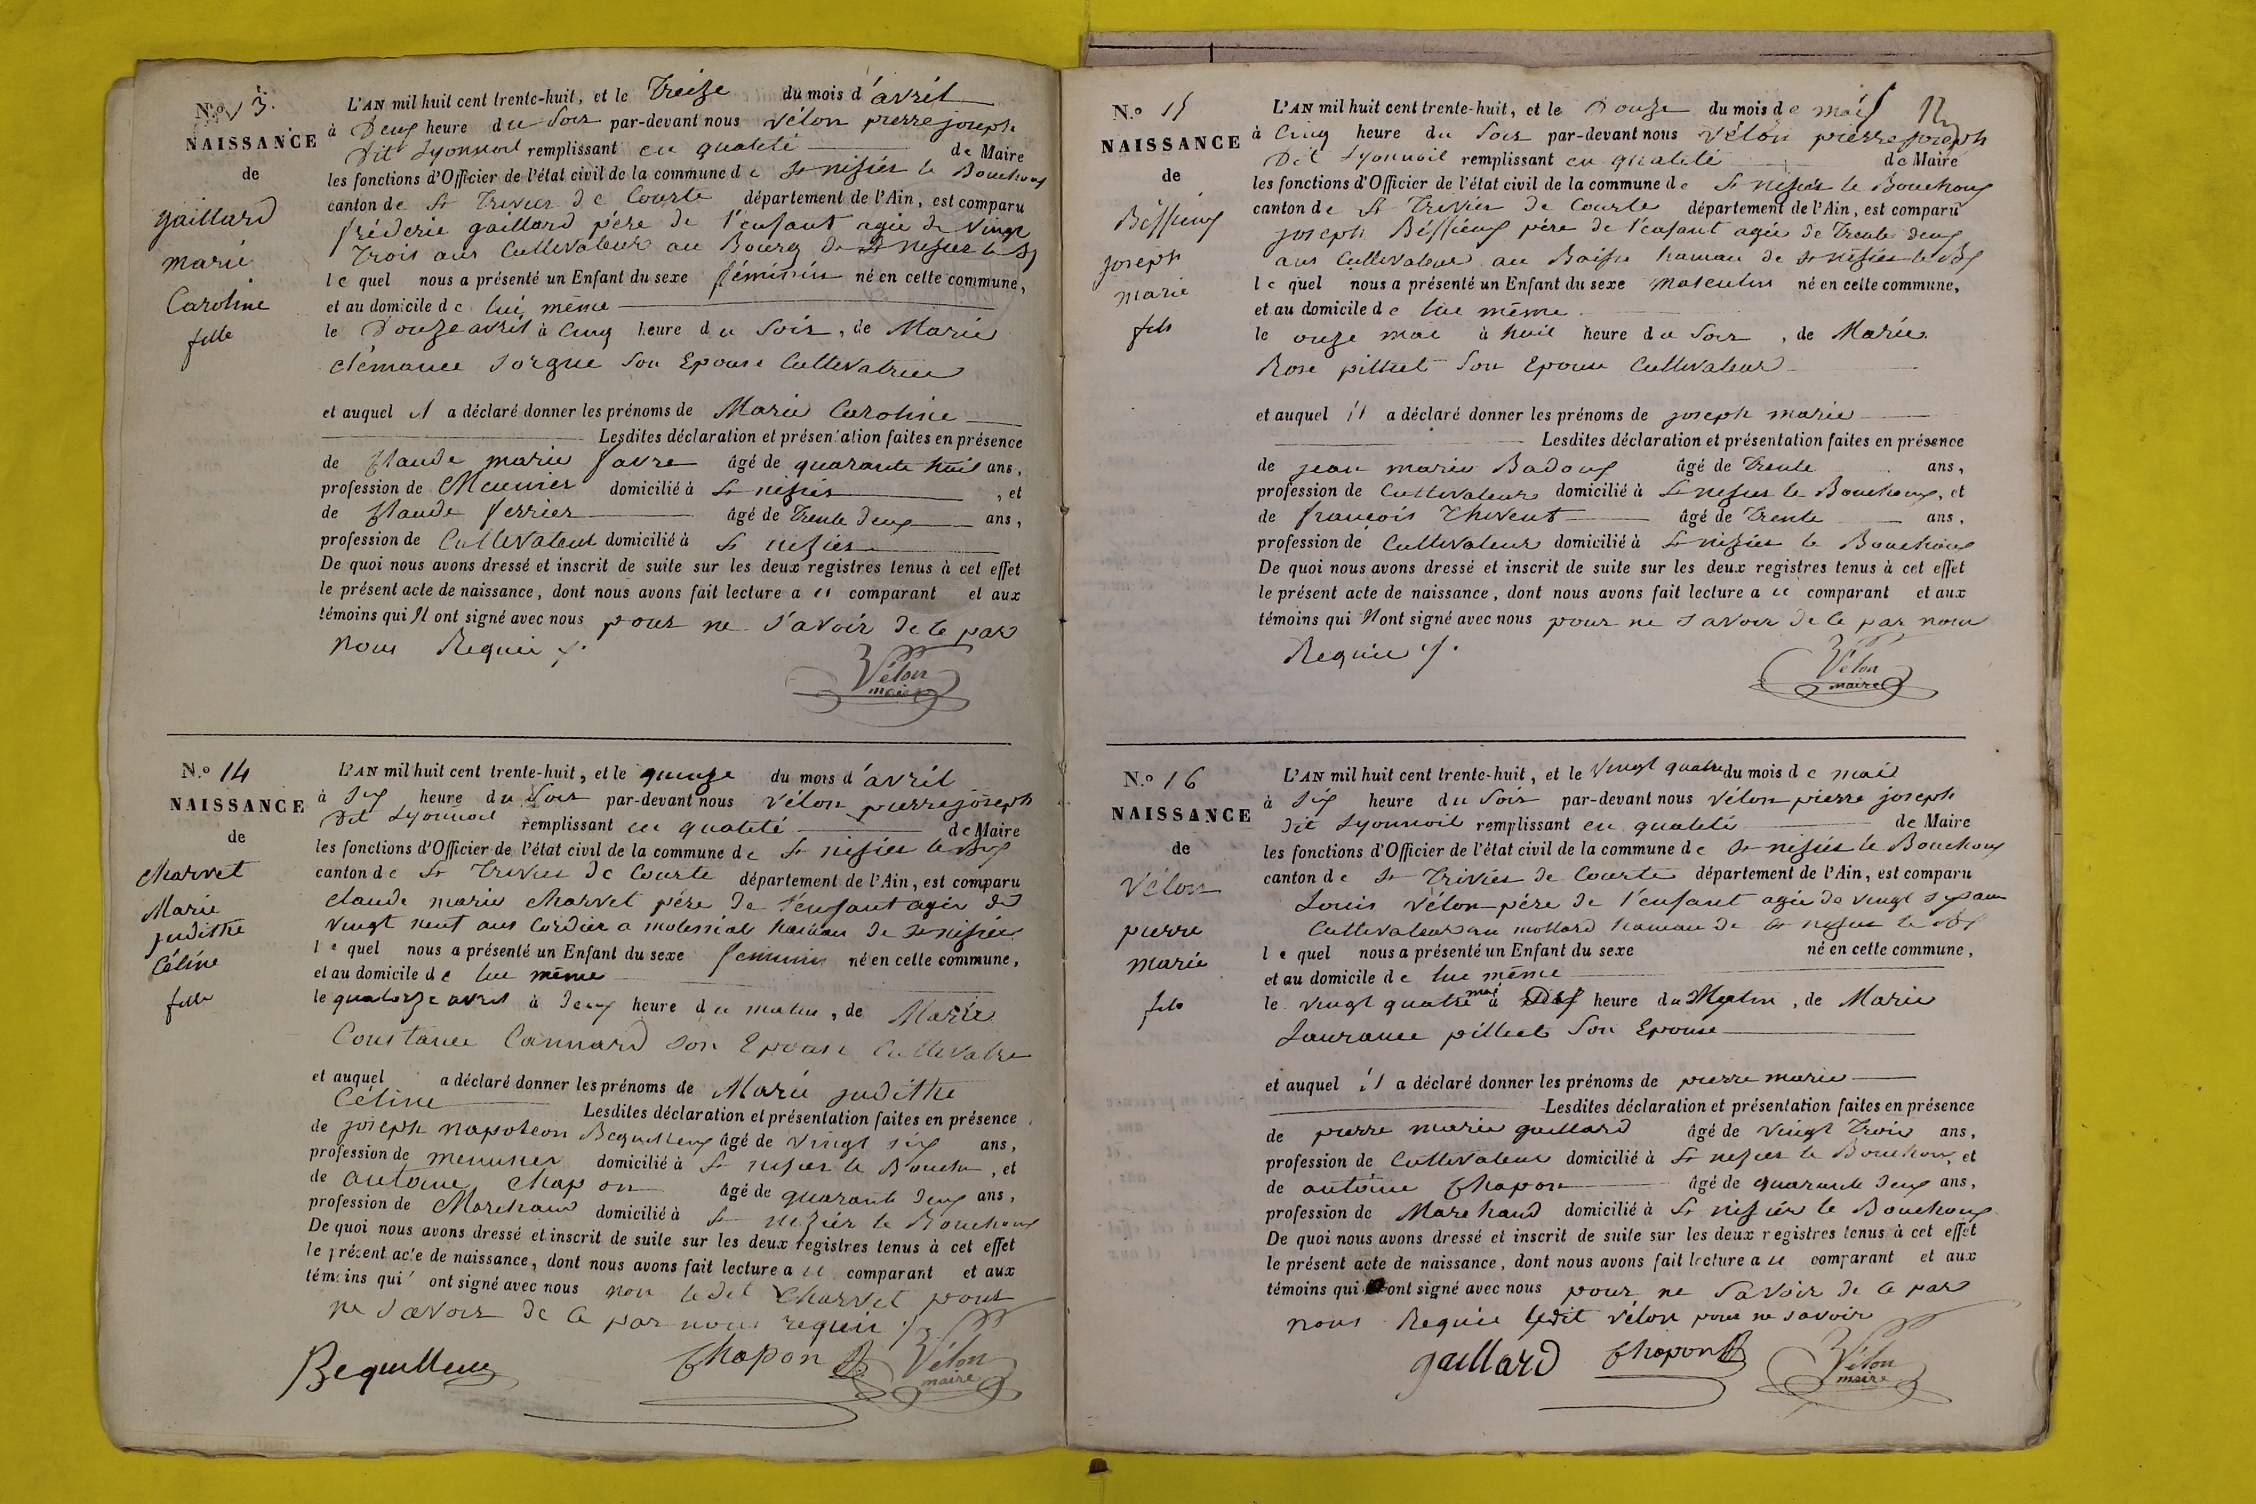 N.o 13.
NAISSANCE
de
gaillard
marie
Caroline
fille
L'AN mil huit cent trente-huit, et le Treize du mois d'avril
à Deux heure du Soir par-devant nous Vélon pierre joseph
Dit Lyonnoit remplissant en qualité de Maire
les fonctions d'Officier de l'état civil de la commune de St nisier le Bouchoux
canton de St Trivier de Courte département de l'Ain, est comparu
fréderic gaillard pére de l'enfant agée de Vingt
Trois ans Cultivateur au Bourg de St nisier le Bx
lequel nous a présenté un Enfant du sexe féminin né en cette commune,
et au domicile de lui même
le Douze avril à Cinq heure du Soir, de Marie
clémance Sorgue Son Epouse Cultivatrice
et auquel il a déclaré donner les prénoms de Marie Caroline
Lesdites déclaration et présentation faites en présence
de Claude marie favre âgé de quarante huit ans,
profession de Meunier domicilié à St nisier, et
de Claude ferrier âgé de Trente Deux ans,
profession de Cultivateur domicilié à St nisier
De quoi nous avons dressé et inscrit de suite sur les deux registres tenus à cet effet
le présent acte de naissance, dont nous avons fait lecture au comparant et aux
témoins qui N ont signé avec nous pour ne Savoir de ce par
nous Requie f.
Vélon
maire
N.o 14
NAISSANCE
de
charvet
Marie
judithe
Céline
fille
L'AN mil huit cent trente-huit, et le quinze du mois d'avril
à Six heure du Soir par-devant nous Vélon pierre joseph
Dit Lyonnoit remplissant en qualité de Maire
les fonctions d'Officier de l'état civil de la commune de St nisier le Bx
canton de St Trivier de Courte département de l'Ain, est comparu
claude marie charvet pére de l'enfant agée de
vingt neuf ans Cordier a molessiat hameau de St nisier
lequel nous a présenté un Enfant du sexe feminin né en cette commune,
et au domicile de lui même
le quatorze avril à Deux heure du matin, de Marie
Constance Cannard Son Epouse Cultivatre
et auquel a déclaré donner les prénoms de Marie judithe
Céline Lesdites déclaration et présentation faites en présence
de joseph napoleon Bequilleux âgé de vingt Six ans,
profession de menusier domicilié à St nisier le Bouchu, et
de antoine Chapon âgé de quarante Deux ans,
profession de Marchand domicilié à St nizier le Bouchoux
De quoi nous avons dressé et inscrit de suite sur les deux registres tenus à cet effet
le présent acte de naissance, dont nous avons fait lecture au comparant et aux
témoins qui ont signé avec nous non ledit Charvet pour
ne Savoir de ce par nous requie f
Bequilleux Chapon Vélon
maire
12
N.o 15
NAISSANCE
de
Béssieux
joseph
marie
fils
L'AN mil huit cent trente-huit, et le Douze du mois de mai
à Cinq heure du Soir par-devant nous Vélon pierre joseph
Dit Lyonnoit remplissant en qualité de Maire
les fonctions d'Officier de l'état civil de la commune de St nisier le Bouchoux
canton de St Trivier de Courte département de l'Ain, est comparu
joseph Béssieux pére de l'enfant agée de Trente deux
ans Cultivateur au hameau de St nisier le Bx
lequel nous a présenté un Enfant du sexe masculin né en cette commune,
et au domicile de lui même
le onze mai à huit heure du Soir, de Marie
Rose pilliet Son Epouse Cultivateur
et auquel il a déclaré donner les prénoms de joseph marie
Lesdites déclaration et présentation faites en présence
de jean marie Badoux âgé de Trente ans,
profession de Cultivateur domicilié à St nisier le Bouchoux, et
de françois Thevent âgé de Trente ans,
profession de Cultivateur domicilié à St nisier le Bouchoux
De quoi nous avons dressé et inscrit de suite sur les deux registres tenus à cet effet
le présent acte de naissance, dont nous avons fait lecture au comparant et aux
témoins qui N ont signé avec nous pour ne Savoir de ce par nous
Requie f.
Vélon
maire
N.o 16
NAISSANCE
de
Vélon
pierre
marie
fils
L'AN mil huit cent trente-huit, et le Vingt quatre du mois de mai
à Six heure du Soir par-devant nous Vélon pierre joseph
dit Lyonnoit remplissant en qualité de Maire
les fonctions d'Officier de l'état civil de la commune de St nisier le Bouchoux
canton de St Trivier de Courte département de l'Ain, est comparu
Louis Vélon pére de l'enfant agée de vingt Sept ans
Cultivateur au mollard hameau de St nisier le Bx
lequel nous a présenté un Enfant du sexe né en cette commune,
et au domicile de lui même
le vingt quatre mai à Dix heure du Matin, de Marie
Laurance pilliet Son Epouse
et auquel il a déclaré donner les prénoms de pierre marie
Lesdites déclaration et présentation faites en présence
de pierre marie gaillard âgé de Vingt Trois ans,
profession de Cultivateur domicilié à St nisier le Bouchoux, et
de antoine Chapon âgé de quarante Deux ans,
profession de Marchand domicilié à St nisier le Bouchoux
De quoi nous avons dressé et inscrit de suite sur les deux registres tenus à cet effet
le présent acte de naissance, dont nous avons fait lecture au comparant et aux
témoins qui ont signé avec nous pour ne Savoir de ce par
nous Requie ledit Vélon pour ne savoir
gaillard Chapon Vélon
maire